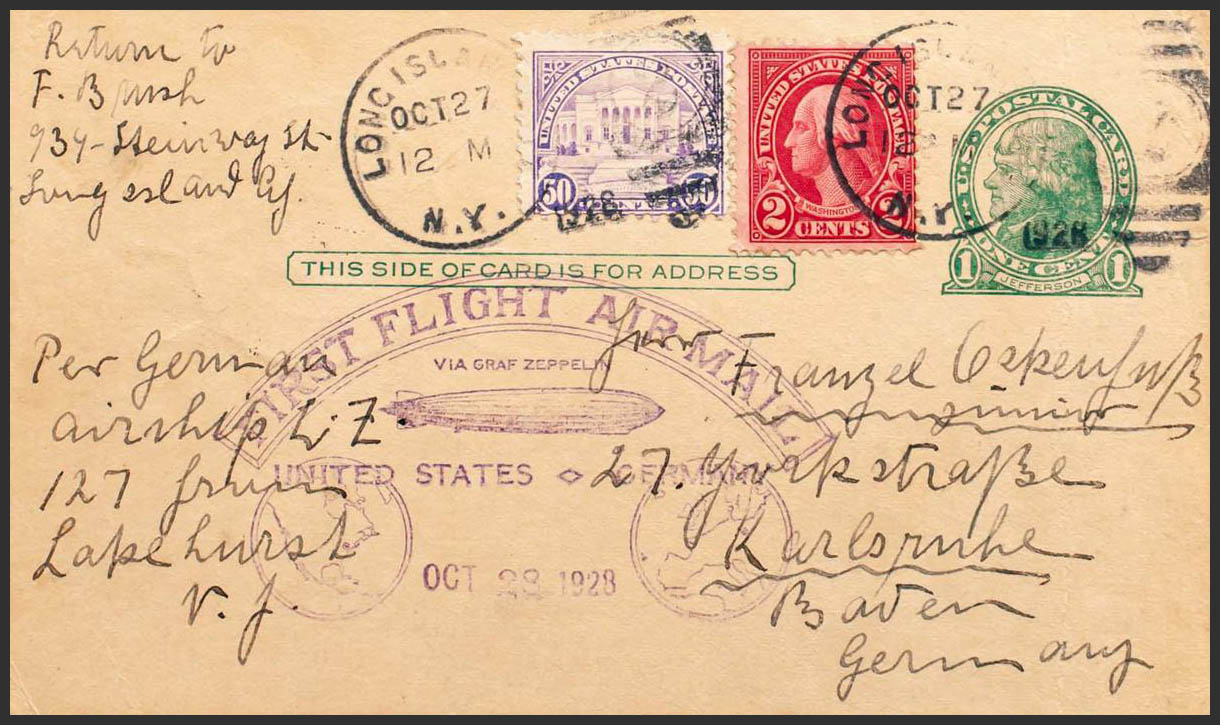 Return to
F. Brush
934- Steinway St-
Long Island Cy.
LONG ISLAND
OCT 27
12 M
N.Y.
1928
UNITED STATES POSTAGE
50 50
CENTS
UNITED STATES POSTAGE
WASHINGTON
2 CENTS 2
LONG ISLAND
OCT 27
N.Y.
1928
U.S. POSTAL CARD
ONE CENT
1 1
JEFFERSON
THIS SIDE OF CARD IS FOR ADDRESS
FIRST FLIGHT AIR MAIL
VIA GRAF ZEPPELIN
UNITED STATES ◇ GERMANY
OCT 28 1928
Per German
airship L.Z
127 from
Lakehurst
N. J.
Herr Franzel
27. Yorkstraße
Karlsruhe
Baden
Germany